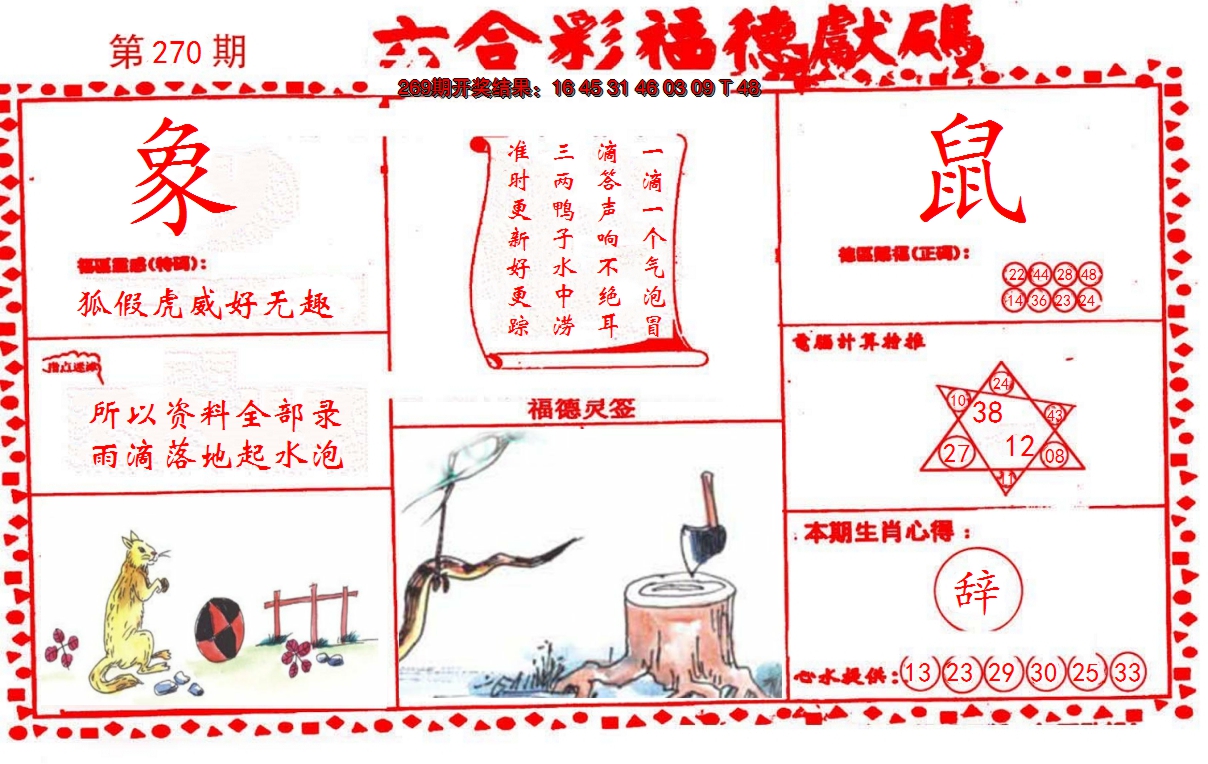 第 270 期
六合彩福德獻碼
269期开奖结果：16 45 31 46 03 09 T 48
象
福區靈感(特碼)：
狐假虎威好无趣
指点迷津
所以资料全部录
雨滴落地起水泡
一滴一个气泡冒
滴答声响不绝耳
三两鸭子水中涝
准时更新好更踪
福德灵签
鼠
德區賜福(正碼)：
22 44 28 48
14 36 23 24
電腦計算檢推
24
10 38 43
27 12 08
11
本期生肖心得：
辞
心水提供：13 23 29 30 25 33